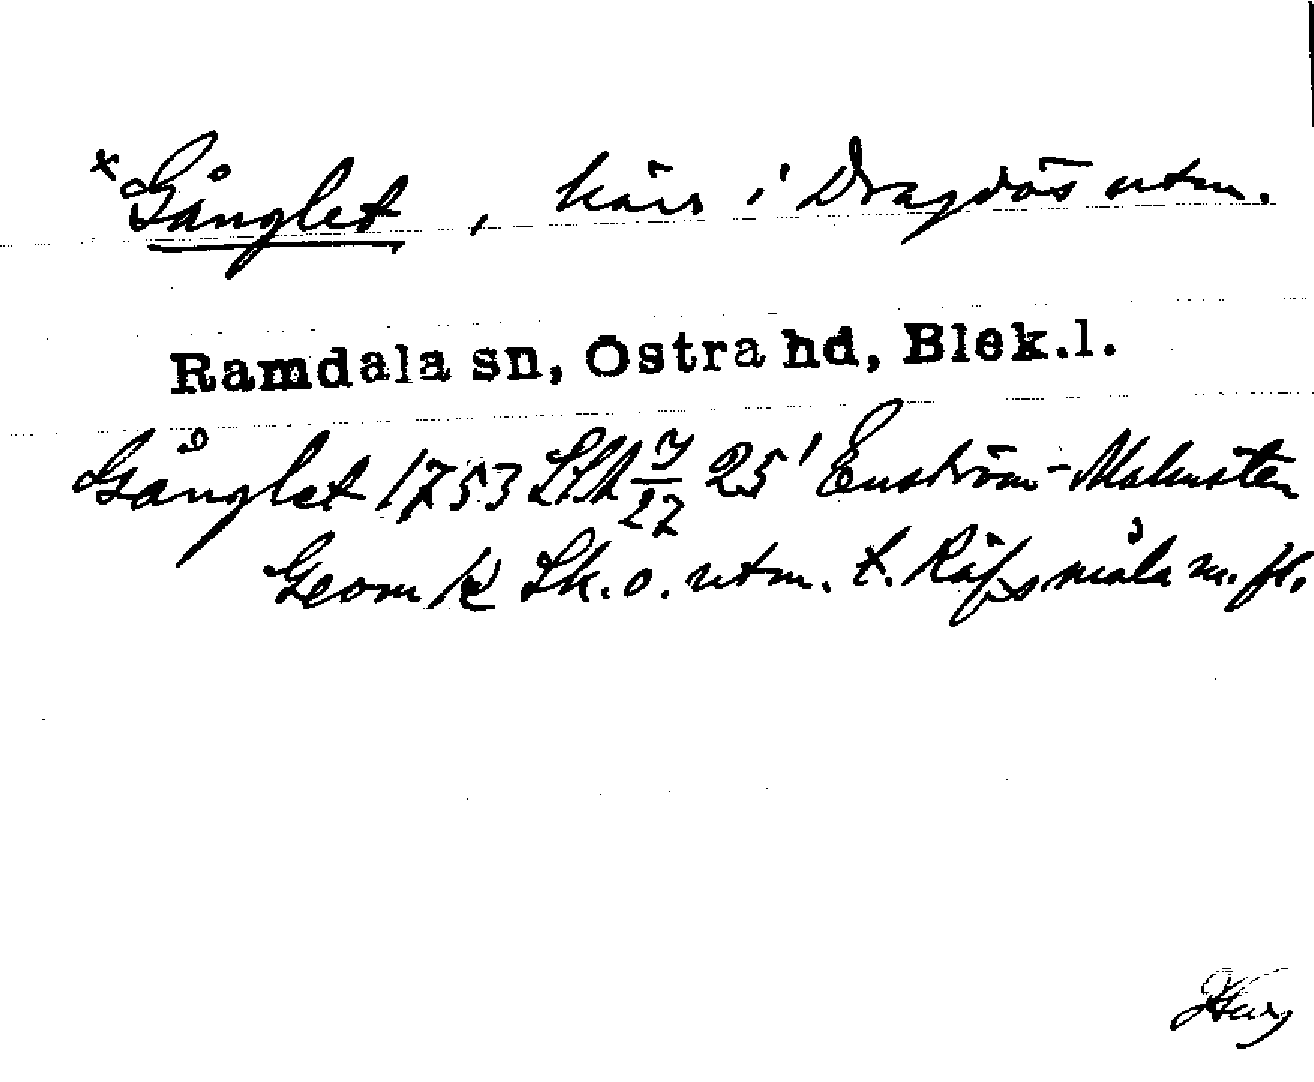 * Gånglet, kärr i Dragsö's utm.
Ramdala sn, Östra hd, Blek.l.
Gånglet 1753 LSA 7/27 25' Enström-Malmsten
Geom k Sk. o. utm. t. Räfsmåla m. fl.